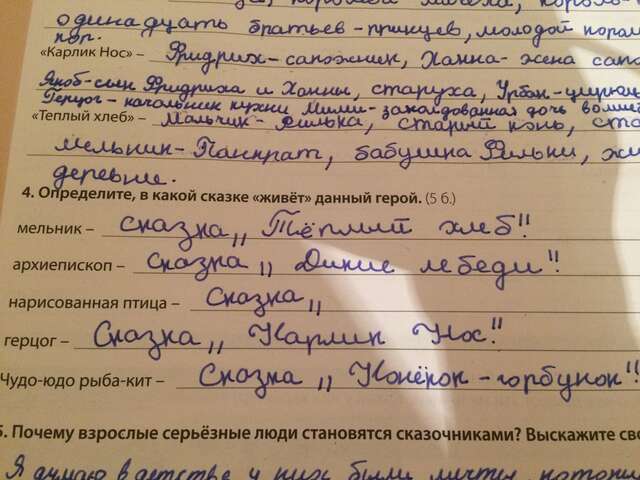 одинадцать братьев-принцев, молодой
«Карлик Нос» – Фридрих-сапожник, Ханна-жена сап
Якоб-сын Фридриха и Ханны, старуха, Урбан-цирюл
Герцог-начальник кухни Мими-заколдованная дочь волш
«Тёплый хлеб» – Мальчик-Филька, старый конь,
мельник-Панкрат, бабушка Фильки,
деревне.
4. Определите, в какой сказке «живёт» данный герой. (5 б.)
мельник – сказка „Тёплый хлеб"
архиепископ – сказка „Дикие лебеди"
нарисованная птица – Сказка „
герцог – Сказка „Карлик Нос"
Чудо-юдо рыба-кит – Сказка „Конёрок-горбунок"
5. Почему взрослые серьёзные люди становятся сказочниками? Выскажите сво
Я думаю в детстве у них были мечты